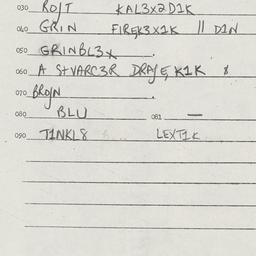 030 ROʃT KAL3X2D1K
040 GRIN FIREK3X1K || D1N
050 GRINBL3X
060 A StVARC3R DRAʃE, K1K 8
070 BROʃN
080 BLU 081 —
090 T1NKL8 LEXT1K